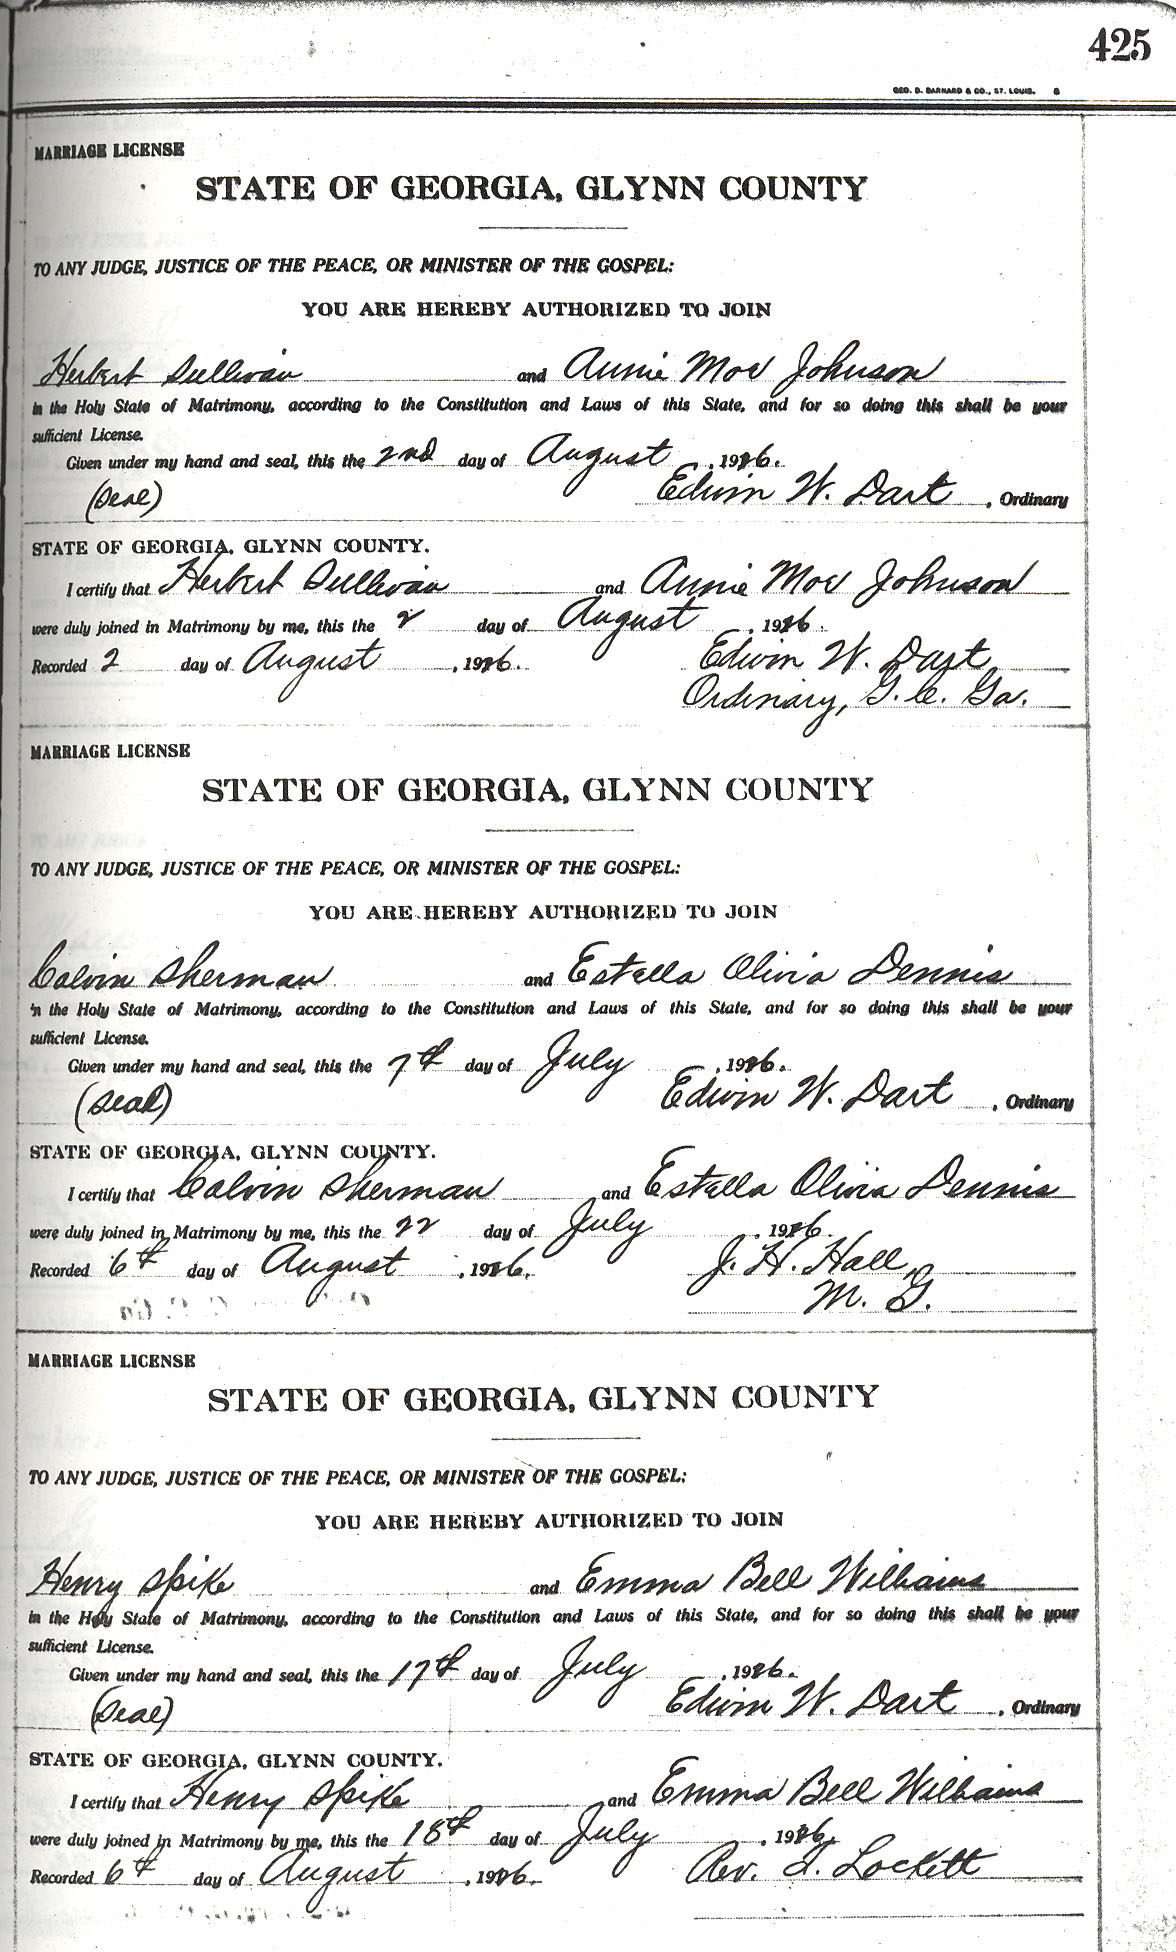 425
GEO. D. BARNARD & CO., ST. LOUIS.
MARRIAGE LICENSE
STATE OF GEORGIA, GLYNN COUNTY
TO ANY JUDGE, JUSTICE OF THE PEACE, OR MINISTER OF THE GOSPEL:
YOU ARE HEREBY AUTHORIZED TO JOIN
Herbert Sullivan and Annie Mae Johnson
in the Holy State of Matrimony, according to the Constitution and Laws of this State, and for so doing this shall be your
sufficient License.
Given under my hand and seal, this the 2nd day of August, 1926.
(Seal) Edwin W. Dart, Ordinary
STATE OF GEORGIA, GLYNN COUNTY.
I certify that Herbert Sullivan and Annie Mae Johnson
were duly joined in Matrimony by me, this the 2 day of August, 1926.
Recorded 2 day of August, 1926. Edwin W. Dart
Ordinary, G. C. Ga.
MARRIAGE LICENSE
STATE OF GEORGIA, GLYNN COUNTY
TO ANY JUDGE, JUSTICE OF THE PEACE, OR MINISTER OF THE GOSPEL:
YOU ARE HEREBY AUTHORIZED TO JOIN
Calvin Sherman and Estella Olivia Dennis
in the Holy State of Matrimony, according to the Constitution and Laws of this State, and for so doing this shall be your
sufficient License.
Given under my hand and seal, this the 7th day of July, 1926.
(Seal) Edwin W. Dart, Ordinary
STATE OF GEORGIA, GLYNN COUNTY.
I certify that Calvin Sherman and Estella Olivia Dennis
were duly joined in Matrimony by me, this the 22 day of July, 1926.
Recorded 6th day of August, 1926. J. H. Hall,
M. G.
MARRIAGE LICENSE
STATE OF GEORGIA, GLYNN COUNTY
TO ANY JUDGE, JUSTICE OF THE PEACE, OR MINISTER OF THE GOSPEL:
YOU ARE HEREBY AUTHORIZED TO JOIN
Henry Spike and Emma Bell Williams
in the Holy State of Matrimony, according to the Constitution and Laws of this State, and for so doing this shall be your
sufficient License.
Given under my hand and seal, this the 17th day of July, 1926.
(Seal) Edwin W. Dart, Ordinary
STATE OF GEORGIA, GLYNN COUNTY.
I certify that Henry Spike and Emma Bell Williams
were duly joined in Matrimony by me, this the 18th day of July, 1926.
Recorded 6th day of August, 1926. Rev. Lockett